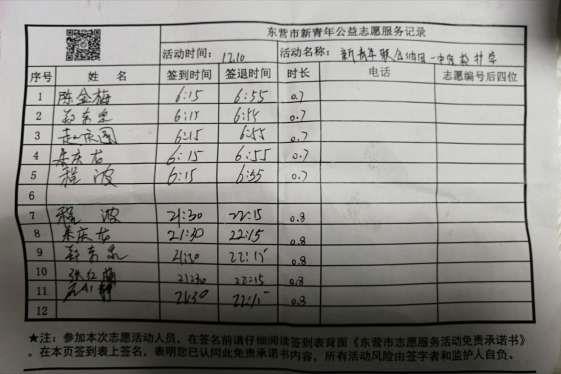 东营市新青年公益志愿服务记录
活动时间: 12.10 活动名称: 新青年联合
序号 姓 名 签到时间 签退时间 时长 电话 志愿编号后四位
1 陈金梅 6:15 6:55 0.7
2 6:15 6:55 0.7
3 赵庆国 6:15 6:55 0.7
4 庆友 6:15 6:55 0.7
5 程波 6:15 6:55 0.7
6
7 程波 21:30 22:15 0.8
8 庆友 21:30 22:15 0.8
9 22:15 0.8
10 张红 21:30 22:15 0.8
11 21:30 22:15 0.8
12
★注: 参加本次志愿活动人员, 在签名前请仔细阅读签到表背面《东营市志愿服务活动免责承诺书》
。在本页签到表上签名, 表明您已认同此免责承诺书内容, 所有活动风险由签字者和监护人自负。